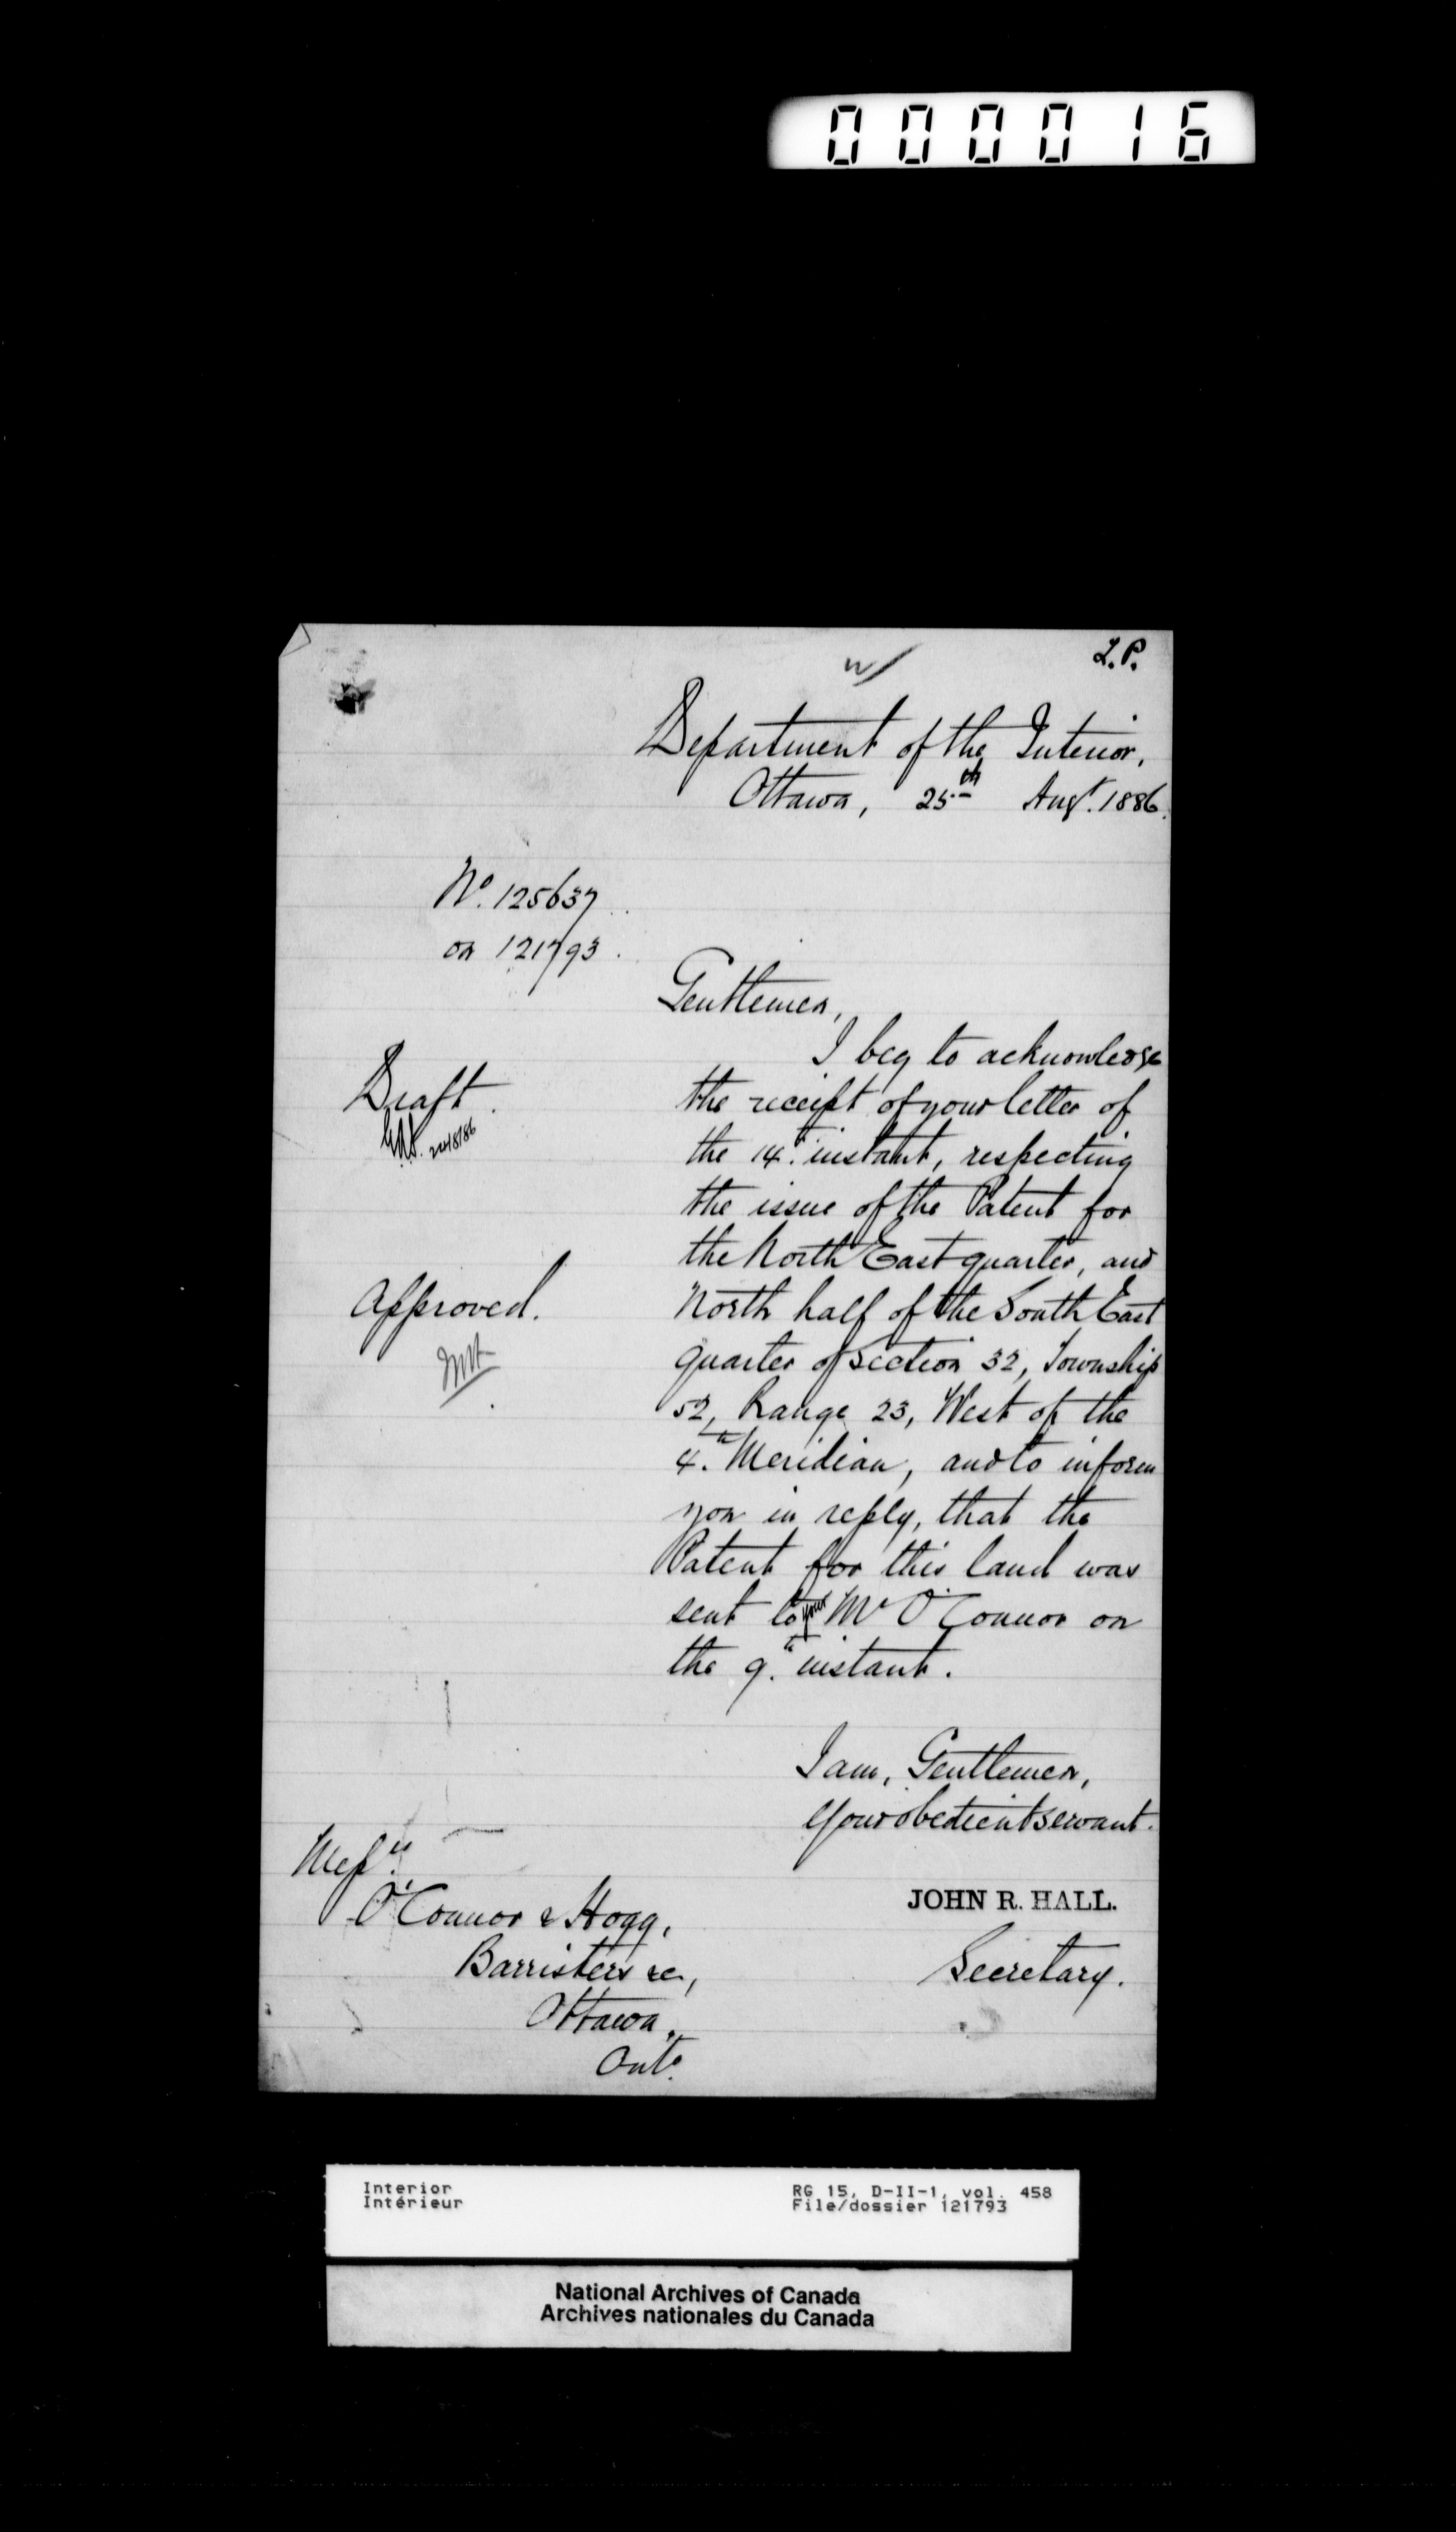 000016
L.P.
Department of the Interior,
Ottawa, 25th Augt. 1886.
No. 125637
on 121793.
Gentlemen,
I beg to acknowledge
the receipt of your letter of
the 14th instant, respecting
the issue of the Patent for
the North East quarter, and
North half of the South East
quarter of Section 32, Township
52, Range 23, West of the
4th Meridian, and to inform
you in reply, that the
Patent for this land was
sent to your Mr O'Connor on
the 9th instant.
Draft.
24/8/86
Approved.
I am, Gentlemen,
Your obedient servant.
JOHN R. HALL.
Secretary.
Messrs.
O'Connor & Hogg,
Barristers &c,
Ottawa,
Onto.
Interior
Intérieur
RG 15, D-II-1, vol. 458
File/dossier 121793
National Archives of Canada
Archives nationales du Canada